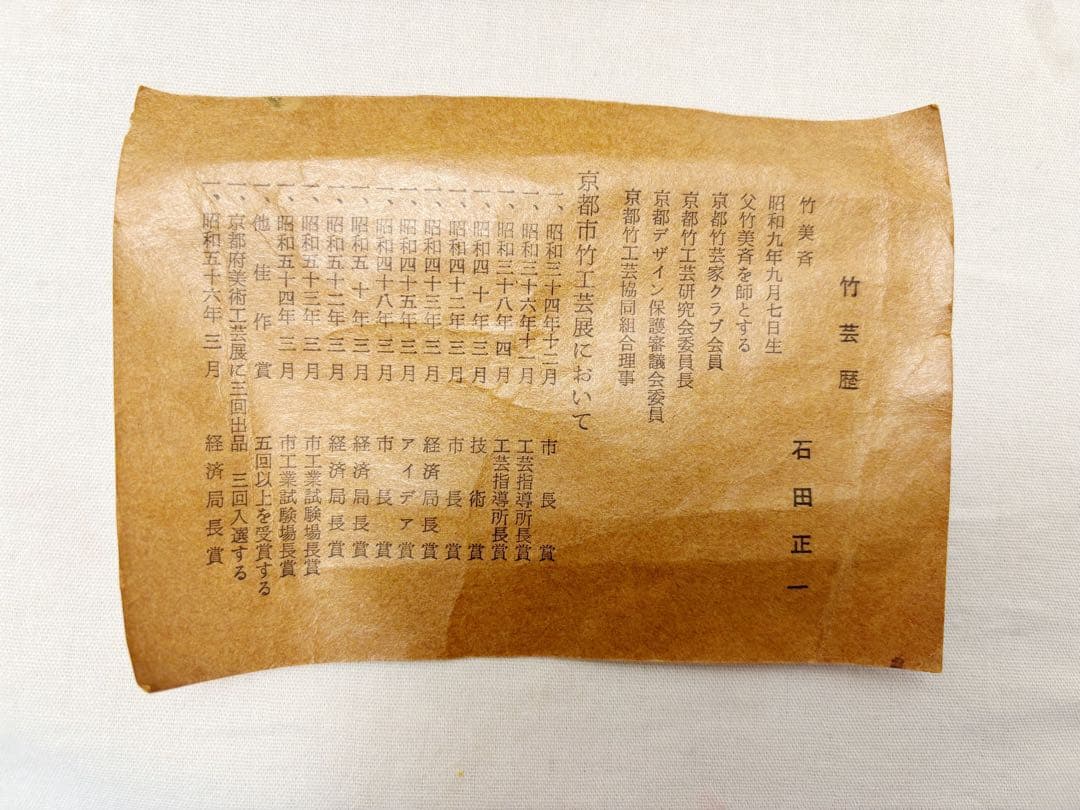 竹芸歴
竹美斉 石田正一
昭和九年九月七日生
父竹美斉を師とする
京都竹芸家クラブ会員
京都竹工芸研究会委員長
京都デザイン保護審議会委員
京都竹工芸協同組合理事
京都市竹工芸展において
一、昭和三十四年十二月 市長賞
一、昭和三十六年十一月 工芸指導所長賞
一、昭和三十八年四月 工芸指導所長賞
一、昭和四十年三月 技術賞
一、昭和四十二年三月 市長賞
一、昭和四十三年三月 経済局長賞
一、昭和四十五年三月 アイデア賞
一、昭和四十八年三月 市長賞
一、昭和五十年三月 経済局長賞
一、昭和五十二年三月 経済局長賞
一、昭和五十三年三月 市工業試験場長賞
一、昭和五十四年三月 市工業試験場長賞
一、他、佳作賞 五回以上を受賞する
一、京都府美術工芸展に三回出品 三回入選する
一、昭和五十六年三月 経済局長賞